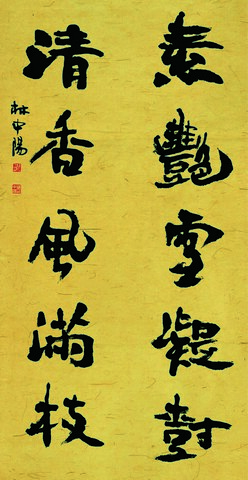 素豔雪凝尌
清香風滿枝
林中陽